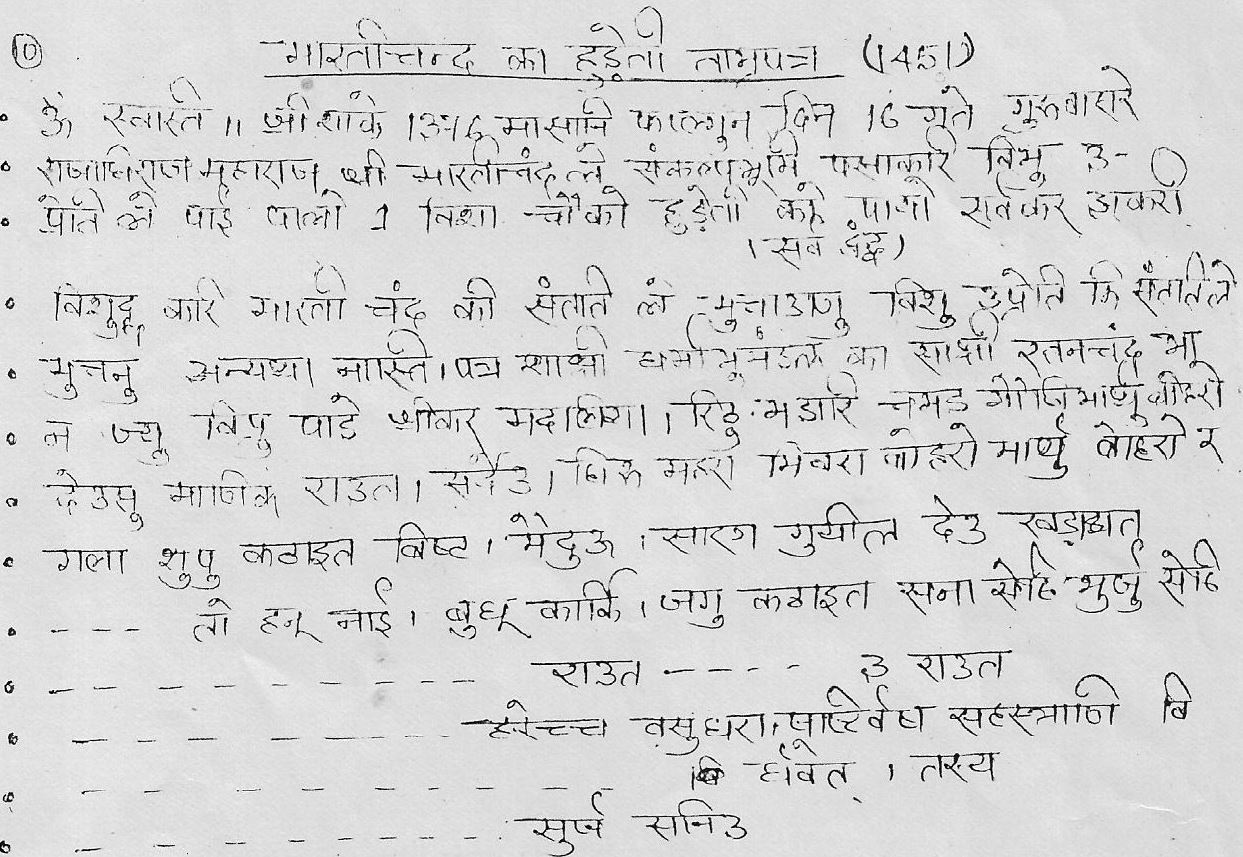 ⑩ भारतीचन्द का हुड़ेती ताम्रपत्र (1451)
ॐ स्वास्ते ।। श्री शाके 13 मासानि फाल्गुन दिन 16 गते गुरुवासरे
राजाधिराज महाराज श्री भारतीचंद ले संकल्पभूमि पसाकरि विभु उ-
प्रेति ले पाई पालो 1 विशा चौको हुड़ेती को पायो सर्वकर अकरो
(सर्व द्वंद्व)
विशुद्ध करि भारती चंद की संतति ले भुचाउणु विशु उप्रेति कि संततिले
भुचनु अन्यथा नास्ति । पत्र शाक्षी धर्माभूमंडल का साक्षी रतनचंद भा
ज्यु विपु पाडे श्रीवर । रितु भडारि चमड बोहरो
देउसू माणिक राउत । मिवरा बोहरो भाण्यु बोहरो र
गला शुपु कठाइत विष्ट । मैदुऊ । सारग गुयील देउ खड़ाइत
---- तो हनू नाई । बुधू कार्कि । जगु कठाइत सना सेटि भुर्जु सेटि
---------- राउत ----- उ राउत
-------- हरेच्च वसुधरा । सहस्त्राणि वि
---------- र्घवेत् । तस्य
--------- सुर्ज सनिउ